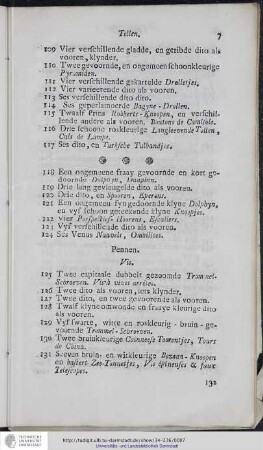 Tollen. 7
109 Vier verschillende gladde, en geribde dito als
vooren, klynder.
110 Twee gevoornde, en ongemeen schoonkleurige
Pyramiden.
111 Vier verschillende gakartelde Drolletjes.
112 Vier varieerende dito als vooren.
113 Ses verschillende dito dito.
114 Ses geperlamoerde Bagyne-Drollen.
115 Twaalf Prins Robberts-Knoopen, en verschil-
lende andere als vooren. Boutons de
116 Drie schoone roskleurige Tollen,
Culs de Lampe.
117 Ses dito, en Turksche Tulbandjes.
118 Een ongemeene fraay gevoornde en kort ge-
doornde Dolphyn, Dauphin.
119 Drie lang gevleugelde dito als vooren.
120 Drie dito, en Spooren, Eperons.
121 Een ongemeene fyn gedoornde klyne Dolphyn,
en vyf schoon gmeekende klyne Knopjes.
122 Vier Perspectief Hoorens, Escaliers.
123 Vyf verschillende dito als vooren.
124 Ses Venus Navels, Ombilics.
Pennen.
Vis.
125 Twee capitaale dubbelt gezoomde Trommel-
Schroeven. Vis à
126 Twee dito als vooren, iets klynder.
127 Twee dito, en twee gevoorende als vooren.
128 Twaalf klyne omwonde en fraaye kleurige dito
als vooren.
129 Vyf swarte, witte en roskleurig-bruin-ge-
voornde Trommel-Schroeven.
130 Twee bruinkleurige Chineese Toorentjes, Tours
de China.
131 Seeven bruin- en witkleurige Bezaan-Knoopen
en basterd Zee-Tonnetjes, Vis épineuses & faux
Telescopes.
132